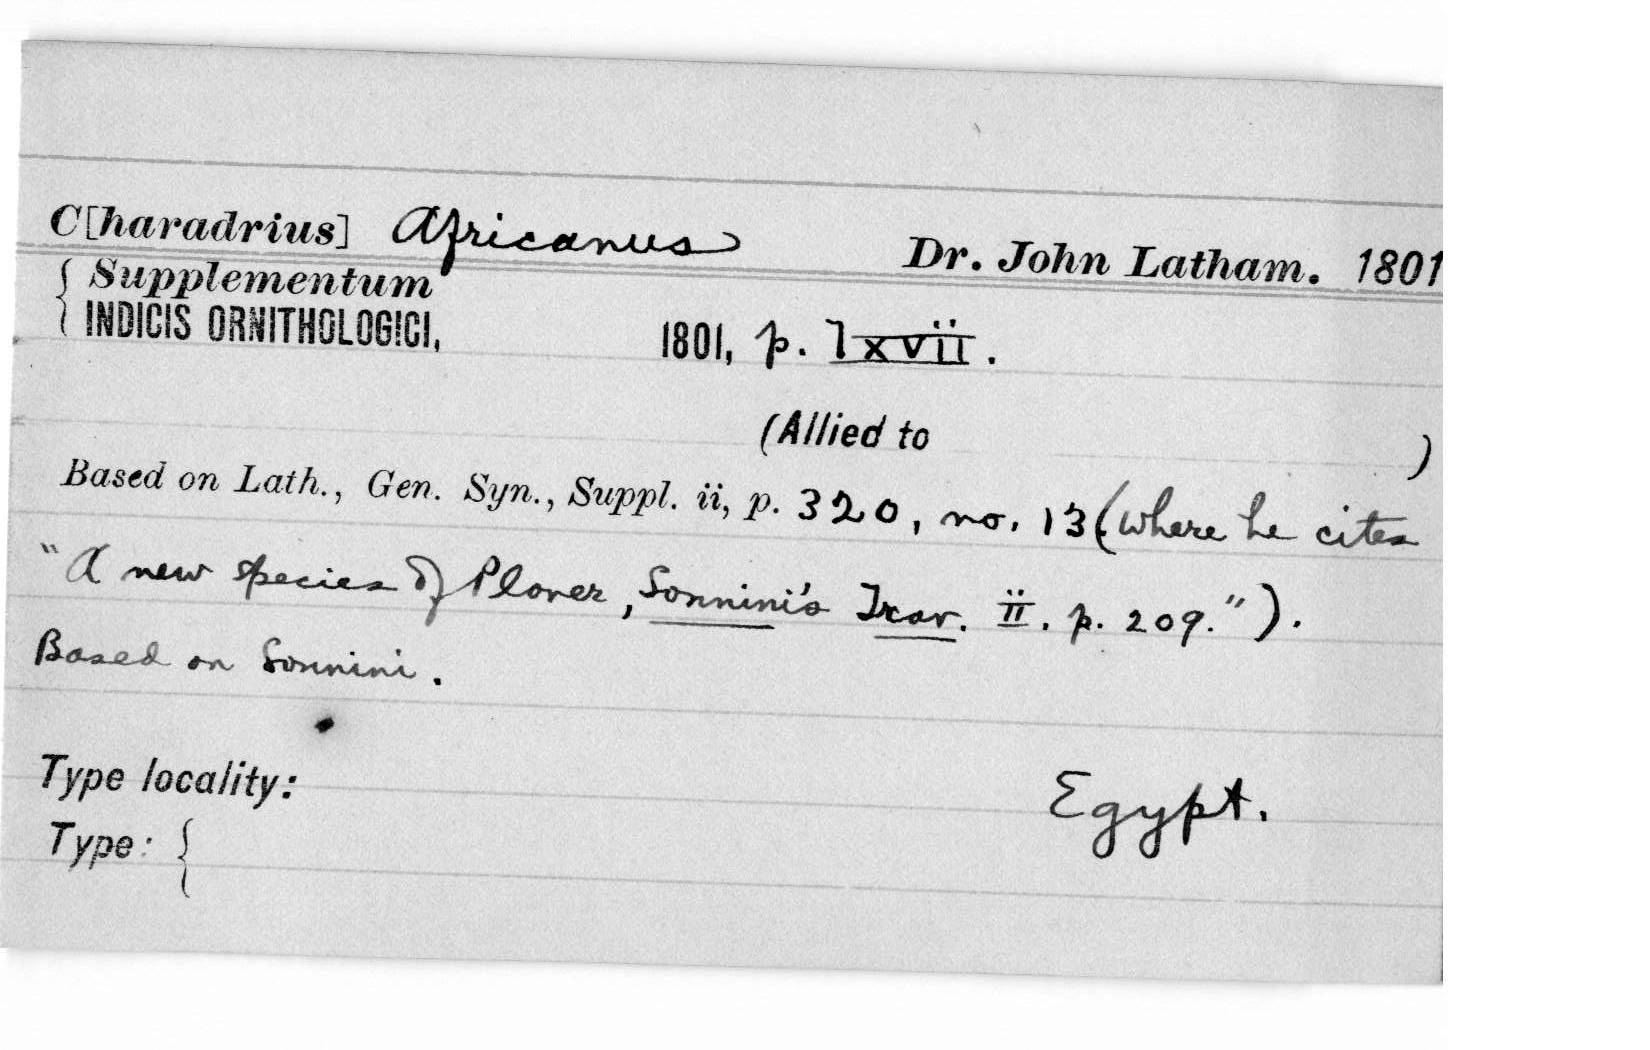 C[haradrius] Africanus Dr. John Latham. 1801
{ Supplementum
INDICIS ORNITHOLOGICI, 1801, p. lxvii.
(Allied to )
Based on Lath., Gen. Syn., Suppl. ii, p. 320, no. 13 (where he cites
"A new species of Plover, Sonnini's Trav. ii. p. 209.").
Based on Sonnini.
Type locality: Egypt.
Type: {